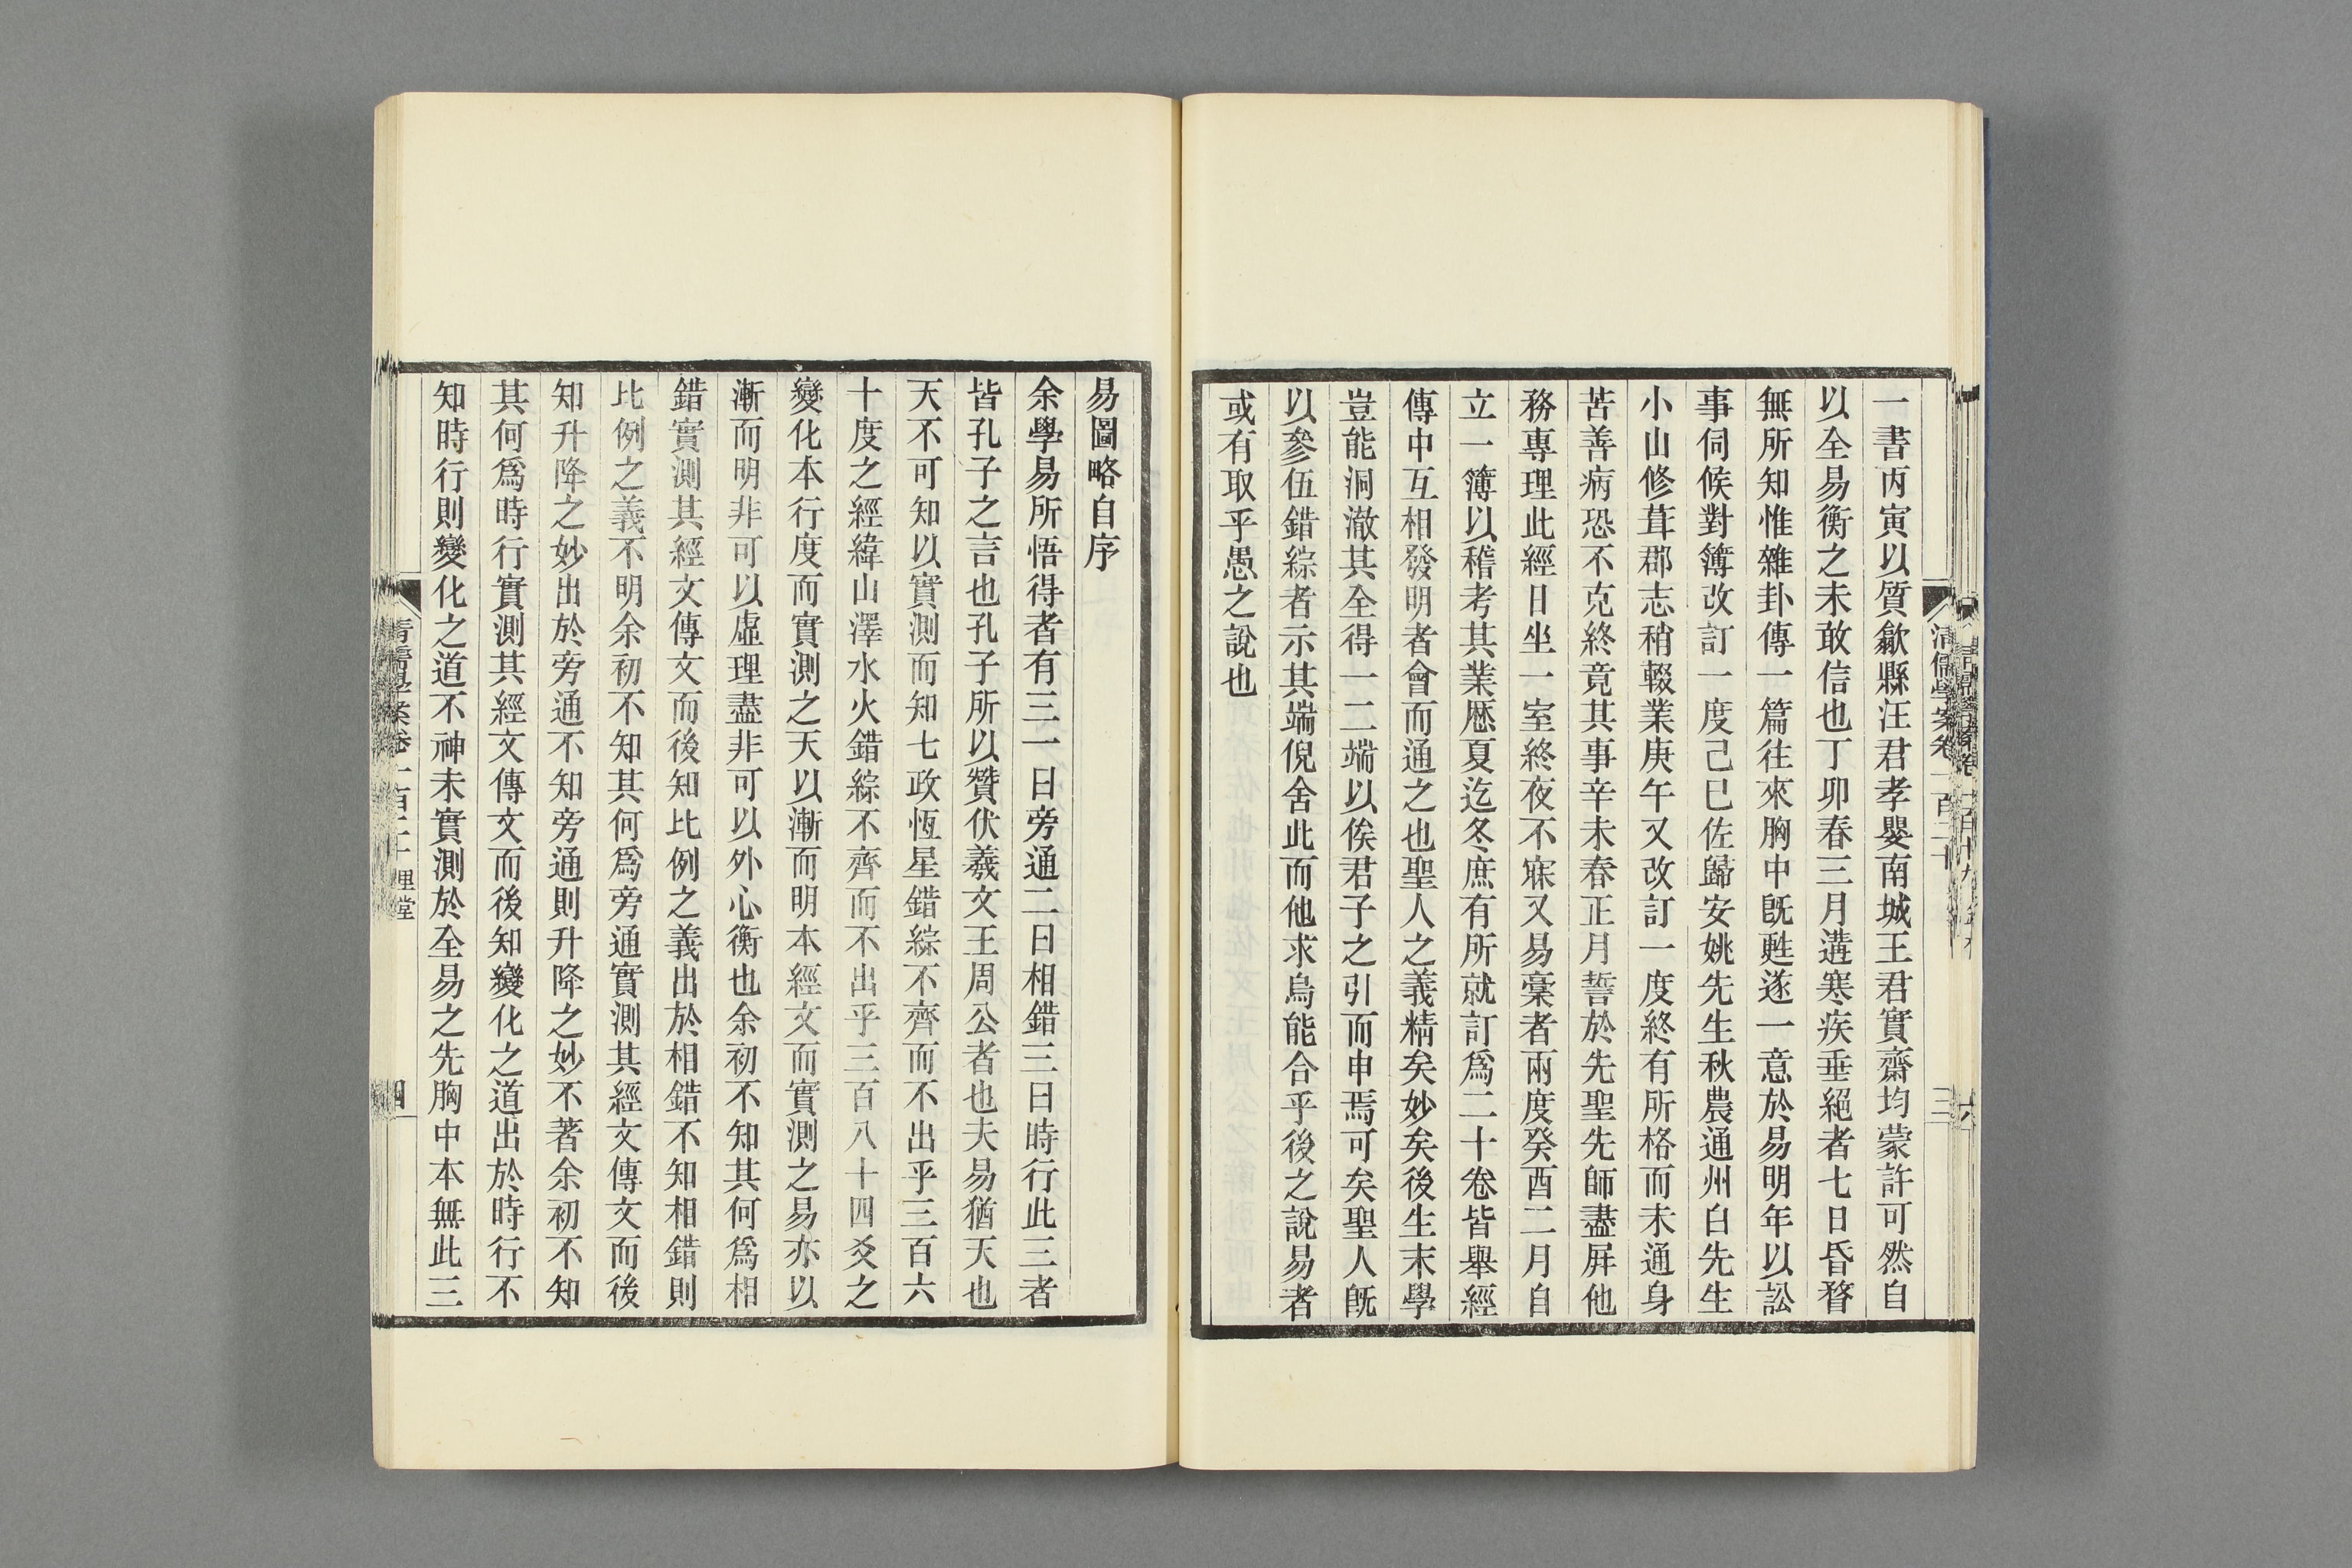 清儒學案卷一百二十
三
一書丙寅以質歙縣汪君孝嬰南城王君實齋均蒙許可然自
以全易衡之未敢信也丁卯春三月遘寒疾垂絕者七日昏瞀
無所知惟雜卦傳一篇往來胸中旣甦遂一意於易明年以訟
事伺候對簿改訂一度己巳佐歸安姚先生秋農通州白先生
小山修葺郡志稍輟業庚午又改訂一度終有所格而未通身
苦善病恐不克終竟其事辛未春正月誓於先聖先師盡屏他
務專理此經日坐一室終夜不寐又易稾者兩度癸酉二月自
立一簿以稽考其業歷夏迄冬庶有所就訂爲二十卷皆舉經
傳中互相發明者會而通之也聖人之義精矣妙矣後生末學
豈能洞澈其全得一二端以俟君子之引而申焉可矣聖人旣
以參伍錯綜者示其端倪舍此而他求烏能合乎後之說易者
或有取乎愚之說也
易圖略自序
余學易所悟得者有三一曰旁通二曰相錯三曰時行此三者
皆孔子之言也孔子所以贊伏羲文王周公者也夫易猶天也
天不可知以實測而知七政恆星錯綜不齊而不出乎三百六
十度之經緯山澤水火錯綜不齊而不出乎三百八十四爻之
變化本行度而實測之天以漸而明本經文而實測之易亦以
漸而明非可以虛理盡非可以外心衡也余初不知其何爲相
錯實測其經文傳文而後知比例之義出於相錯不知相錯則
比例之義不明余初不知其何爲旁通實測其經文傳文而後
知升降之妙出於旁通不知旁通則升降之妙不著余初不知
其何爲時行實測其經文傳文而後知變化之道出於時行不
知時行則變化之道不神未實測於全易之先胸中本無此三
清儒學案卷一百二十 理堂
四